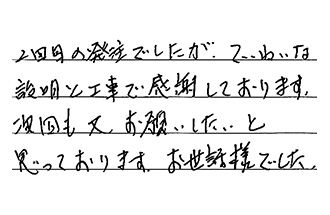 2回目の発注でしたが、ていねいな
説明と工事で感謝しております。
次回も又、お願いしたいと
思っております。お世話様でした。